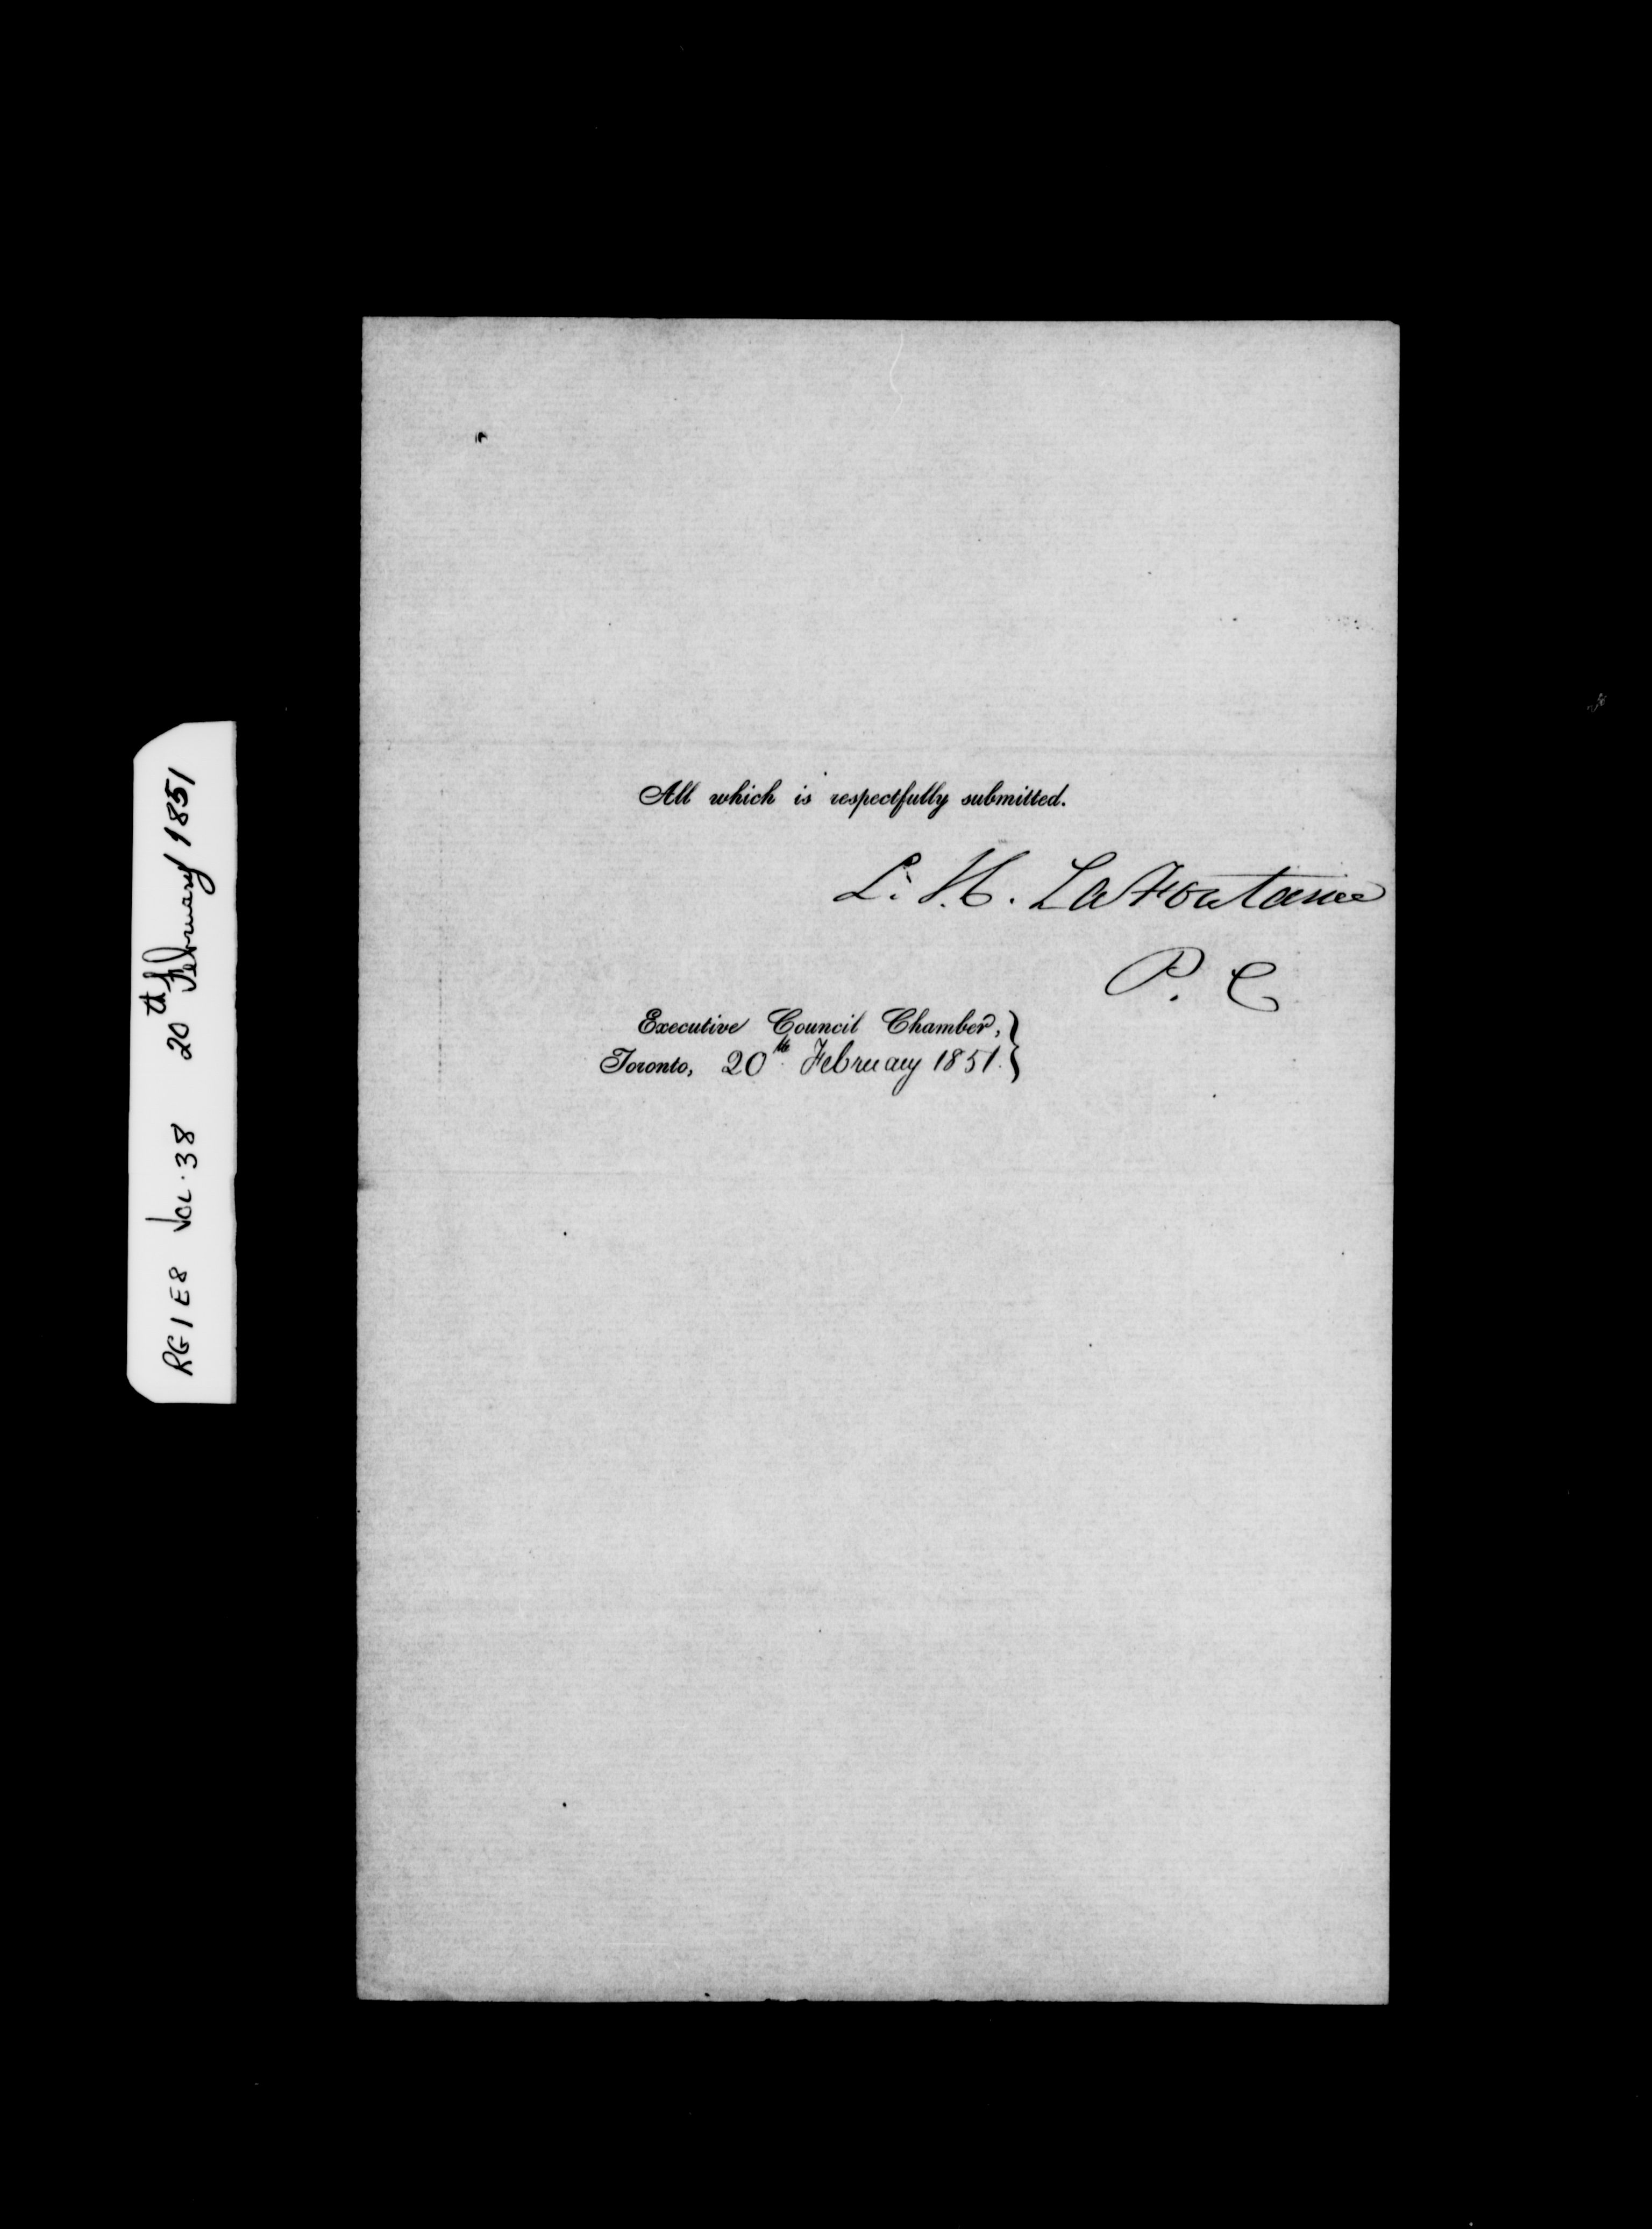 All which is respectfully submitted.
L. H. LaFontaine
P. C
Executive Council Chamber,
Toronto, 20th February 1851.
RG1 E8 Vol. 38 20th February 1851